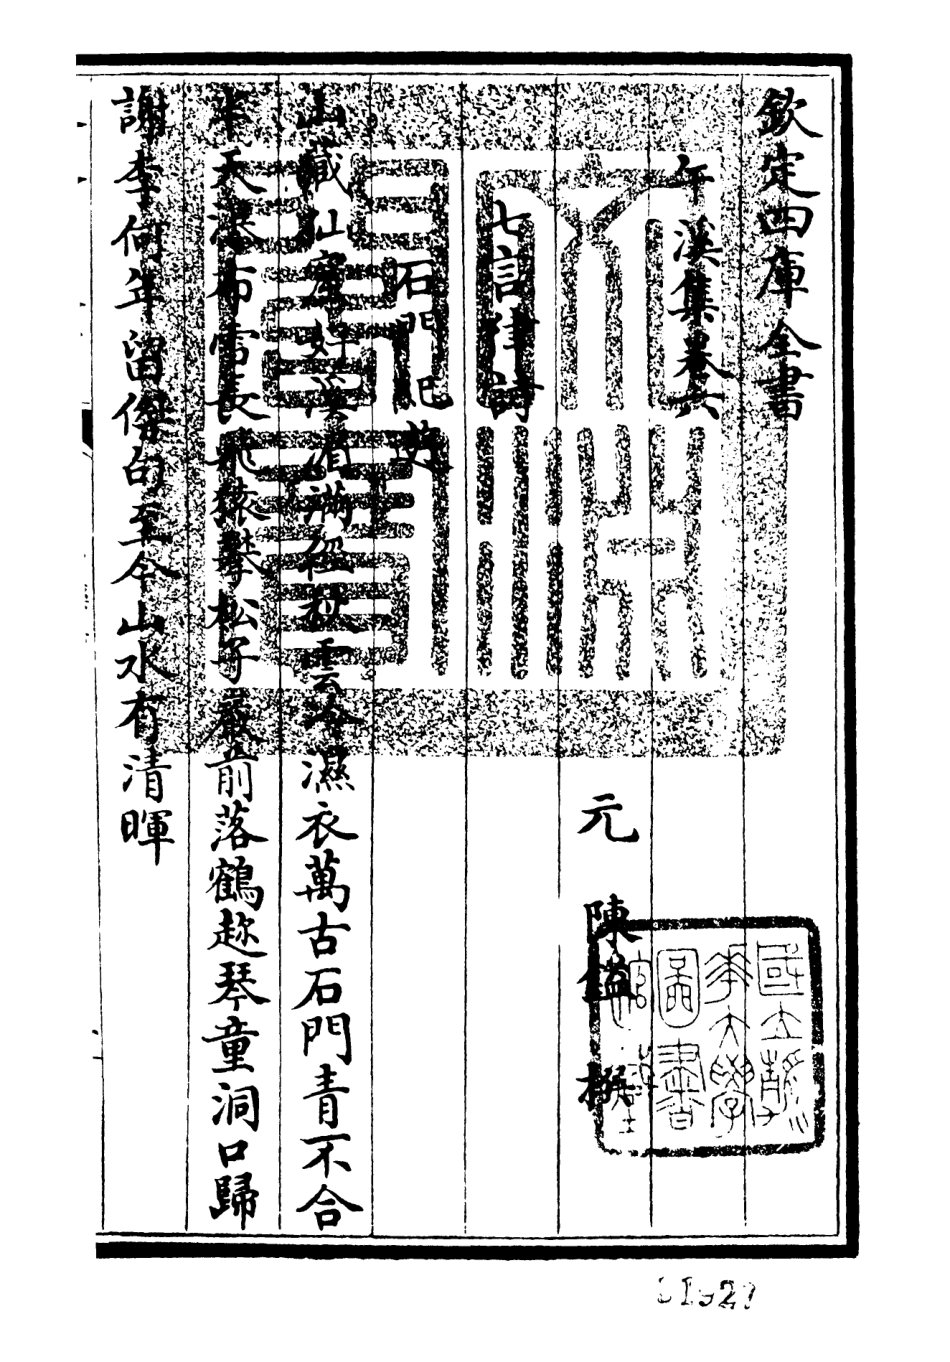 欽定四庫全書
午溪集卷六
元 陳鎰 撰
七言律詩
石門紀遊
山藏仙窟好溪湄滿徑秋雲冷濕衣萬古石門青不合
半天瀑布雪長飛猿攀松子巖前落鶴趂琴童洞口歸
謝李何年留傑句至今山水有清暉